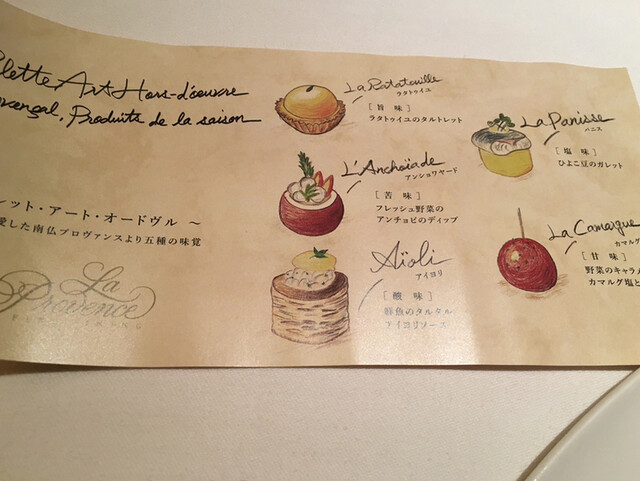 lette Art Hors-d'oeuvre
vençal, Produits de la saison
レット・アート・オードヴル ～
愛した南仏プロヴァンスより五種の味覚
La
Provence
La Ratatouille
ラタトゥイユ
[旨味]
ラタトゥイユのタルトレット
L'Anchoïade
アンショワヤード
[苦味]
フレッシュ野菜の
アンチョビのディップ
Aïoli
アイヨリ
[酸味]
鮮魚のタルタル
アイヨリソース
La Panisse
パニス
[塩味]
ひよこ豆のガレット
La Camargue
カマルグ
[甘味]
野菜のキャラメ
カマルグ塩と